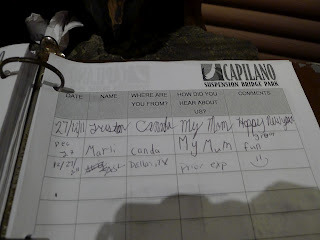 CAPILANO
SUSPENSION BRIDGE PARK
DATE NAME WHERE ARE YOU FROM? HOW DID YOU HEAR ABOUT US? COMMENTS
27/12/11 Canada My Mum Happy
DEC 27 Mark canda My Mum fun
12/27/11 Dallas, TX prior exp